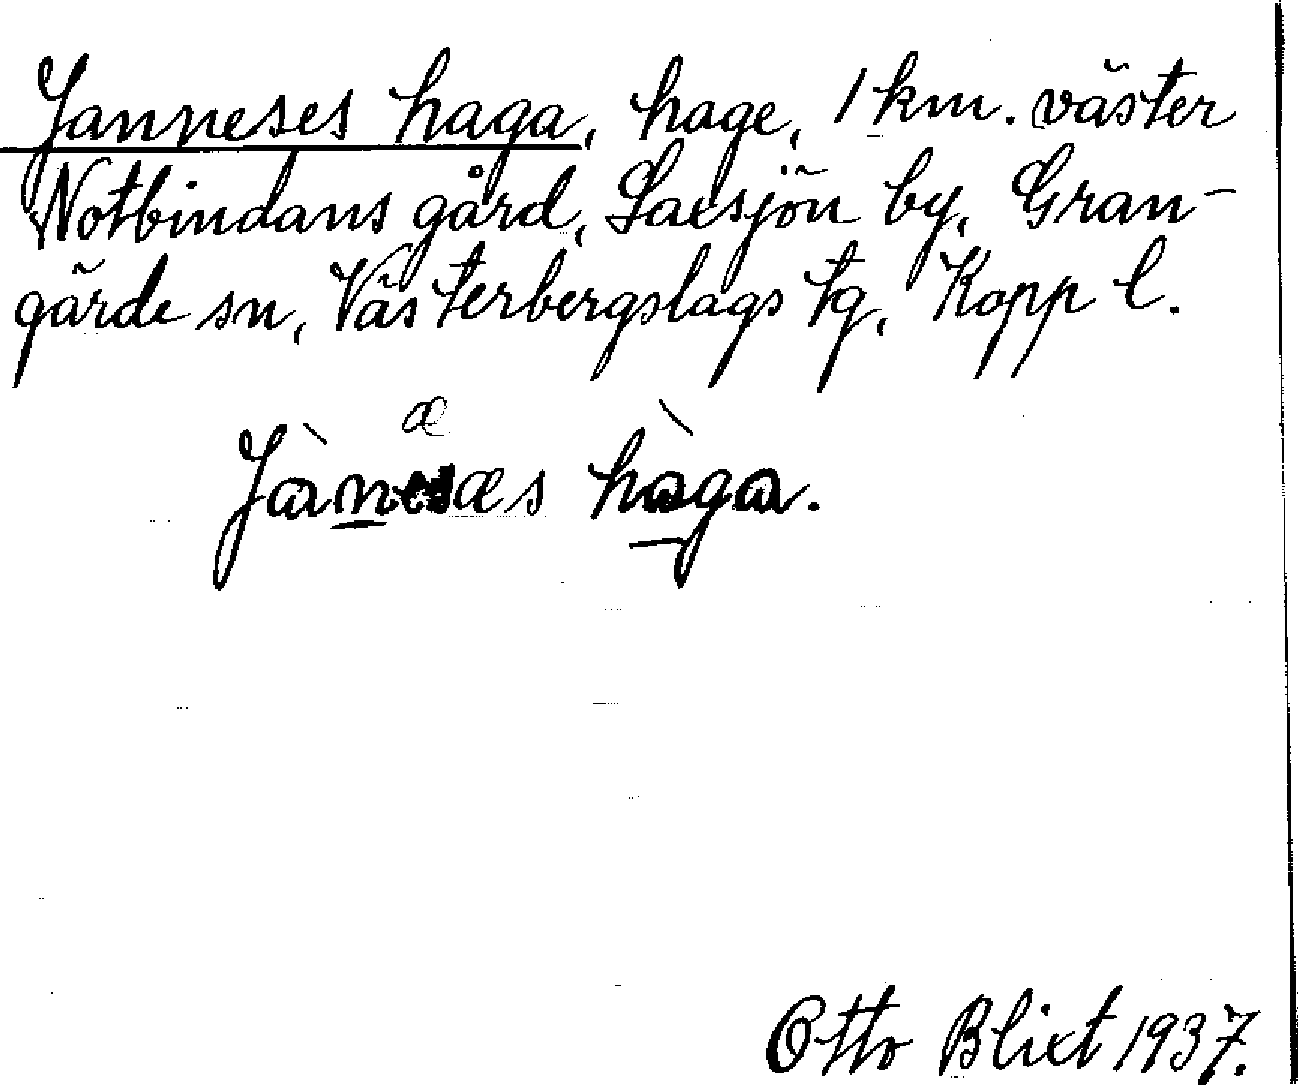 Janneses haga, hage, 1 km. väster
Notbindans gård, Saxsjön by, Gran-
gärde sn, Västerbergslags tg, Kopp l.
æ
Jànesæs hàga.
Otto Blixt 1937.